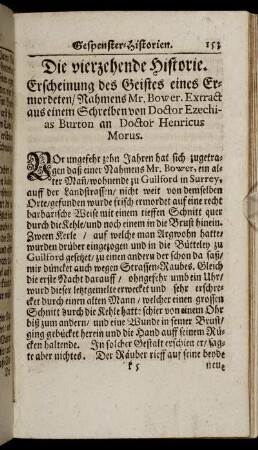 Gespenster-Historien. 153
Die vierzehende Historie.
Erscheinung des Geistes eines Er-
mordeten/ Nahmens Mr. Bower. Extract
aus einem Schreiben von Doctor Ezechi-
as Burton an Doctor Henricus
Morus.
VOr ungefehr zehn Jahren hat sich zugetra-
gen daß einer Nahmens Mr. Bower, ein al-
ter Mañ/ wohnende zu Guilford in Surrey,
auff der Landstrass̃/ nicht weit von demselben
Orte/ gefunden wurde frisch ermordet auf eine recht
barbarische Weise mit einem tieffen Schnitt quer
durch die Kehle/ und noch einem in die Brust hinein.
Zween Kerle / auf welche man Argwohn hatte
wurden drüber eingezogen und in die Bütteley zu
Guilford gesetzt/ zu einen andern der schon da saß/
mir düncket auch wegen Strassen-Raubes. Gleich
die erste Nacht darauff / ohngefehr umb ein Uhr/
wurd dieser letztgemelte erwecket und sehr erschre-
cket durch einen alten Mann / welcher einen grossen
Schnitt durch die Kehle hatt: schier von einem Ohr
biß zum andern/ und eine Wunde in seiner Brust/
ging gebücket herein und die Hand auff seinem Rü-
cken haltende. In solcher Gestalt erschien er/ sag-
te aber nichtes. Der Räuber rieff auf seine beyde
k 5 neue